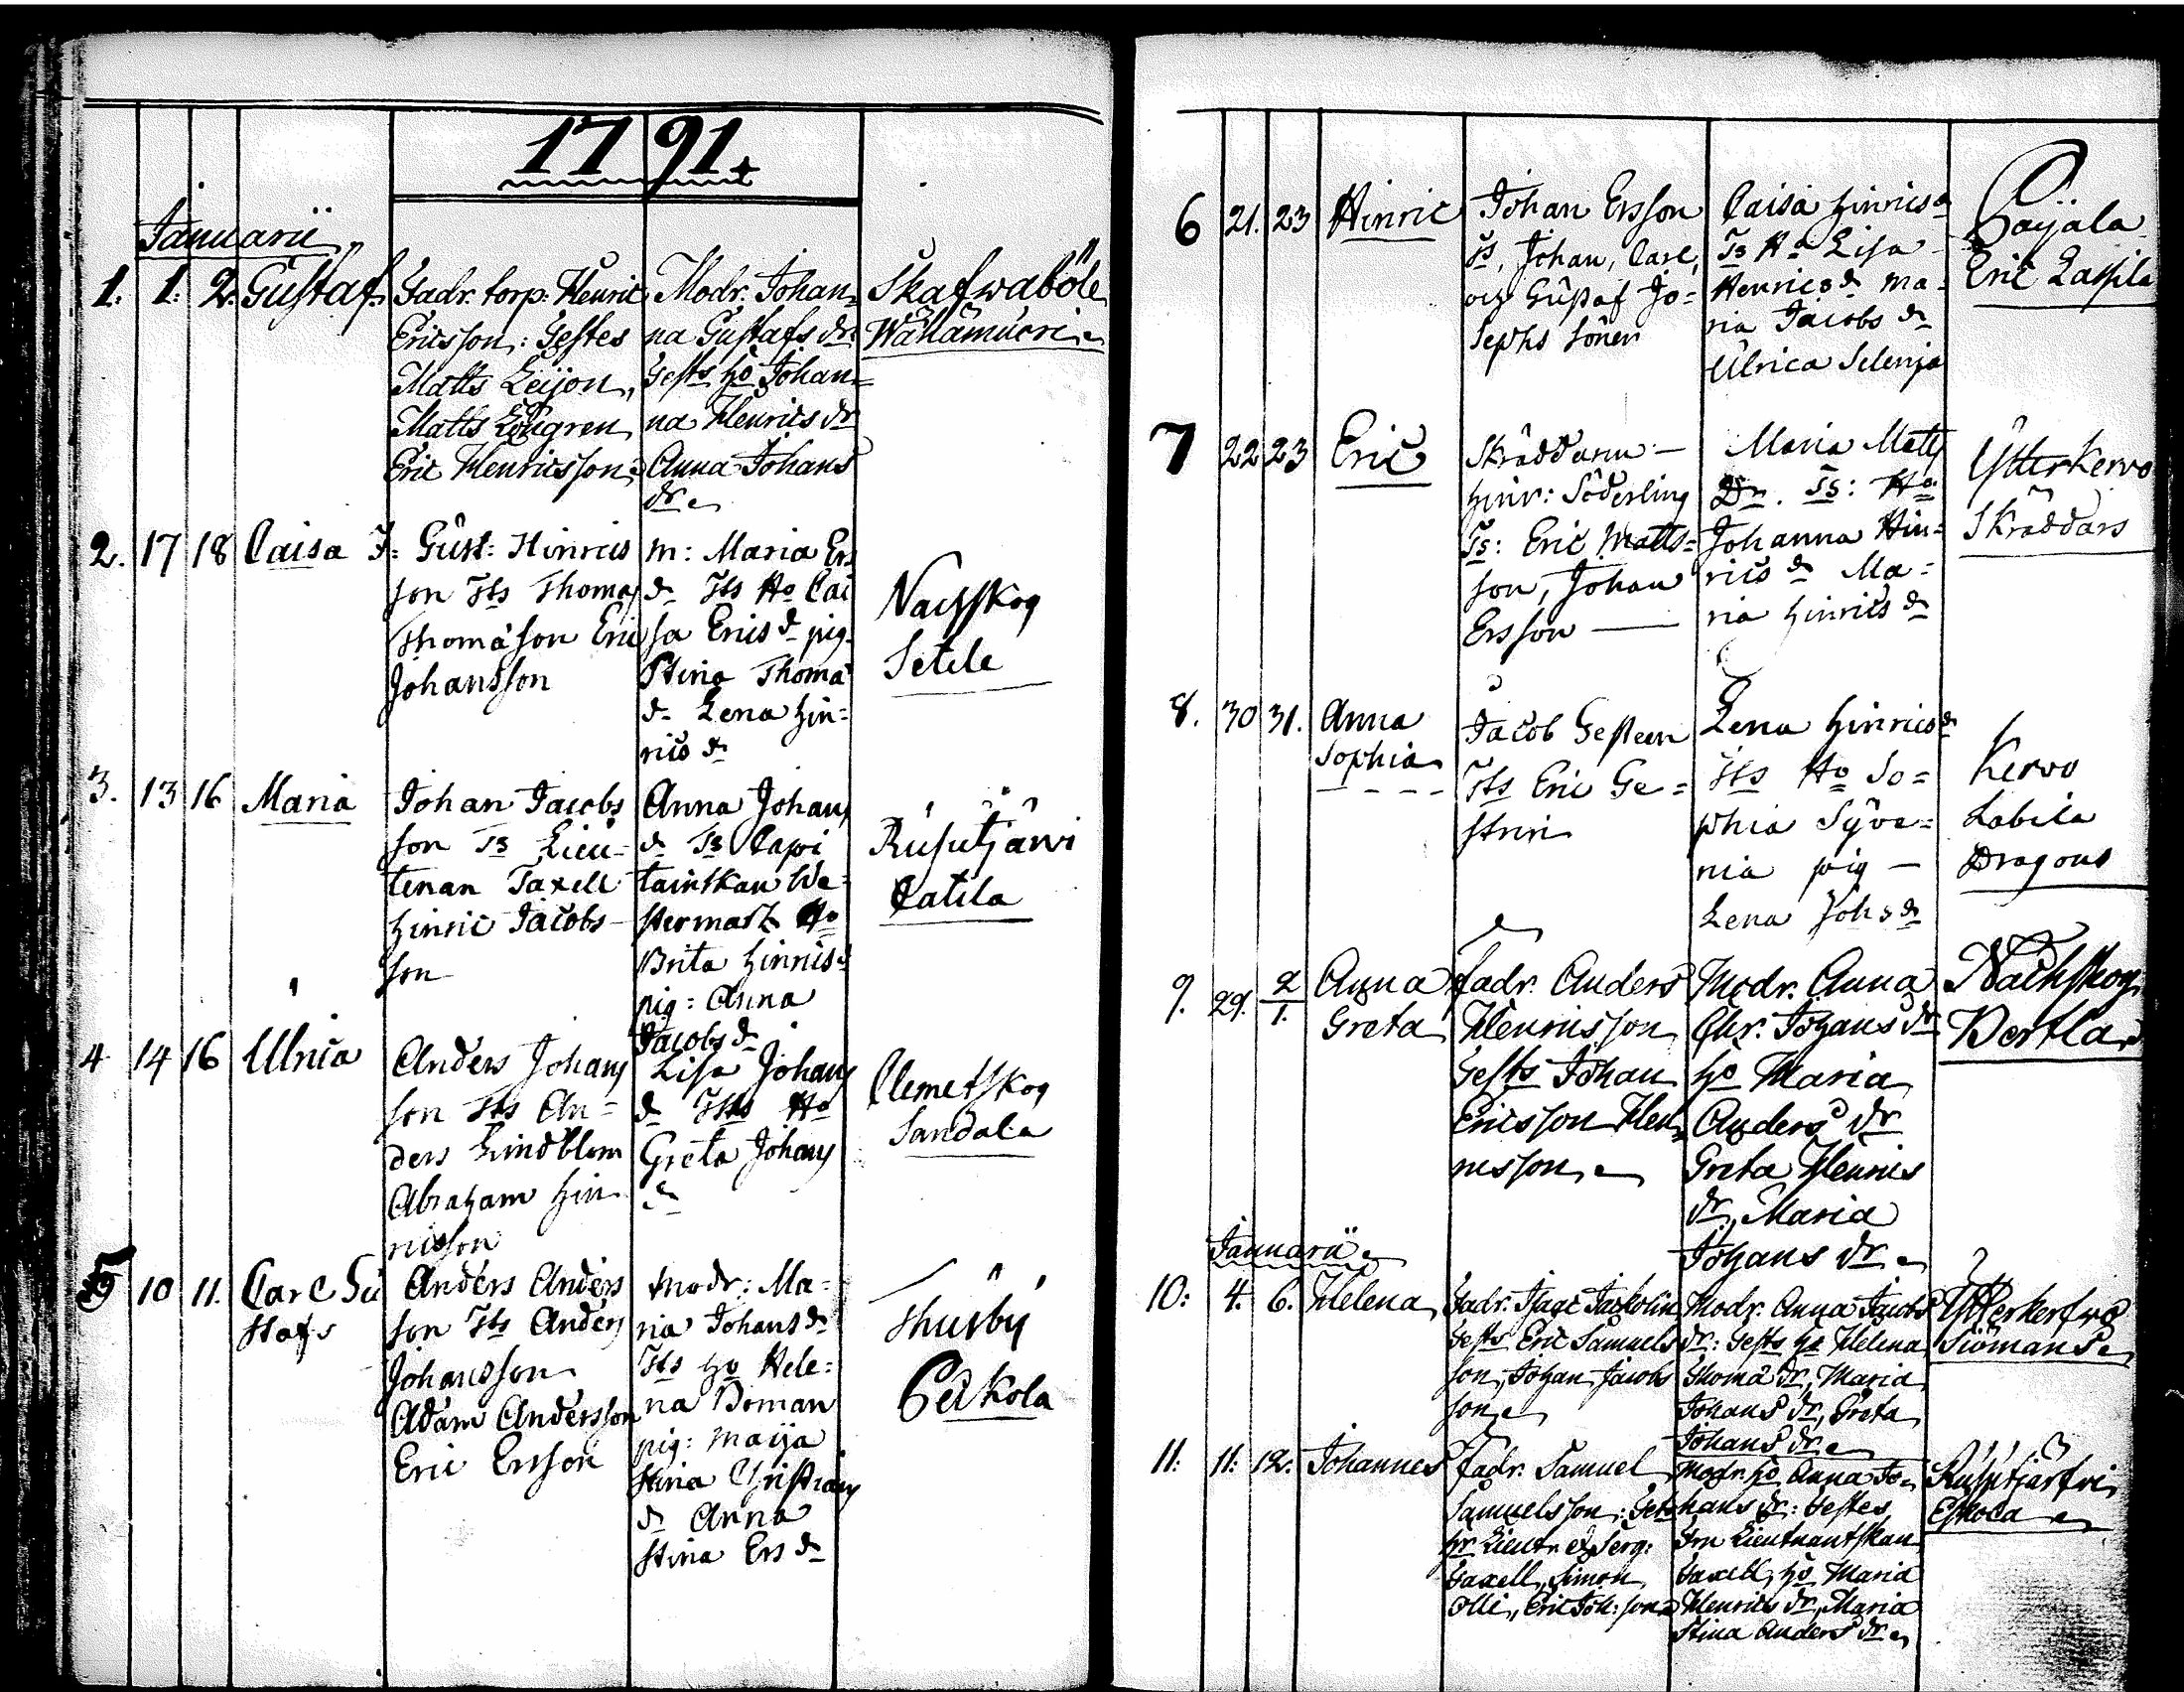 1791.
Januarii
1. 1. 2. Gustaf.
Fadr. torp: Henric
Ericsson: Testes
Matts Leijon,
Matts Löfgren,
Eric Henricsson
Modr. Johan
na Gustafs dr
Tests Ho Johan=
na Henrics dr
Anna Johans
dr
Skafwaböle
Wähämuori
2. 17 18 Caisa
F: Gust: Hinrics
son Tts Thomas
Thomasson Eric
Johansson
m: Maria Ers
dr Tts Ho Cai
sa Erics dr pig.
Stina Thoma
dr Lena Hin=
rics dr
Nackskog
Setele
3. 13 16 Maria
Johan Jacobs
son Ts Lieu=
tenan Taxell
Hinric Jacobs
son
Anna Johans
dr Ts Capi
tainskan We
stermark Ho
Brita Hinrics dr
pig: Anna
Jacobs dr
Rusutjärvi
Catila
4 14 16 Ulrica
Anders Johans
son Tts An=
ders Lindblom
Abraham Hin
ricsson
Lisa Johans
dr Tts Ho
Greta Johans
dr
Clemetskog
Sandala
5 10 11. Carl Gu
stafs
Anders Anders
son Tts Anders
Johansson
Adam Andersson
Eric Ersson
modr: Ma=
ria Johans dr
Tts Ho Hele=
na Boman
pig: Maija
Stina Christians
dr Anna
Stina Ers dr
Thusby
Peckola
6 21. 23 Hinric
Johan Ersson
Ts, Johan, Carl,
och Gustaf Jo=
sephs söner
Caisa Hinrics dr
Ts Ho Lisa
Henrics dr Ma=
ria Jacobs dr
Ulrica Selenja
Paijala
Eric Lassila
7 22 23 Eric
Skräddaren
Hinr: Söderling
Ts: Eric Matts=
son, Johan
Ersson
Maria Matts
Dr. Ts: Ho
Johanna Hin=
rics dr Ma=
ria Hinrics dr
Ytterkervo
Skräddars
8. 30 31. Anna
Sophia
Jacob Gesteen
Tts Eric Ge=
strin
Lena Hinrics dr
Tts Ho So=
phia Syve=
nia pig
Lena Johs dr
Kervo
Labila
Dragons
9. 29. 2/1. Anna
Greta
fadr. Anders
Henricsson
Tests Johan
Ericsson Hen
ricsson
Modr. Anna
Chr. Johans dr
Ho Maria
Anders dr
Greta Henrics
dr, Maria
Johans dr
Nackskog
Bertlas
Januarii
10: 4. 6. Helena
Fadr. Isaac Jackolin
Tests Eric Samuels
son, Johan Jacobs
son
Modr. Anna Jacobs
dr: Tests Ho Helena
Thoma dr, Maria
Johans dr, Greta
Johans dr
Ytterkerfwo
Siömans
11: 11: 12. Johannes
fadr. Samuel
Samuelsson: Test
Hr Lieutn & Serg:
Taxell, Simon
Olli, Eric Joh: son
Modr. Ho Anna Jo=
hans dr: Testes
Frn Lieutnantskan
Taxell, Ho Maria
Henrics dr, Maria
Stina Anders dr
Rusutjärfvi
Eskola